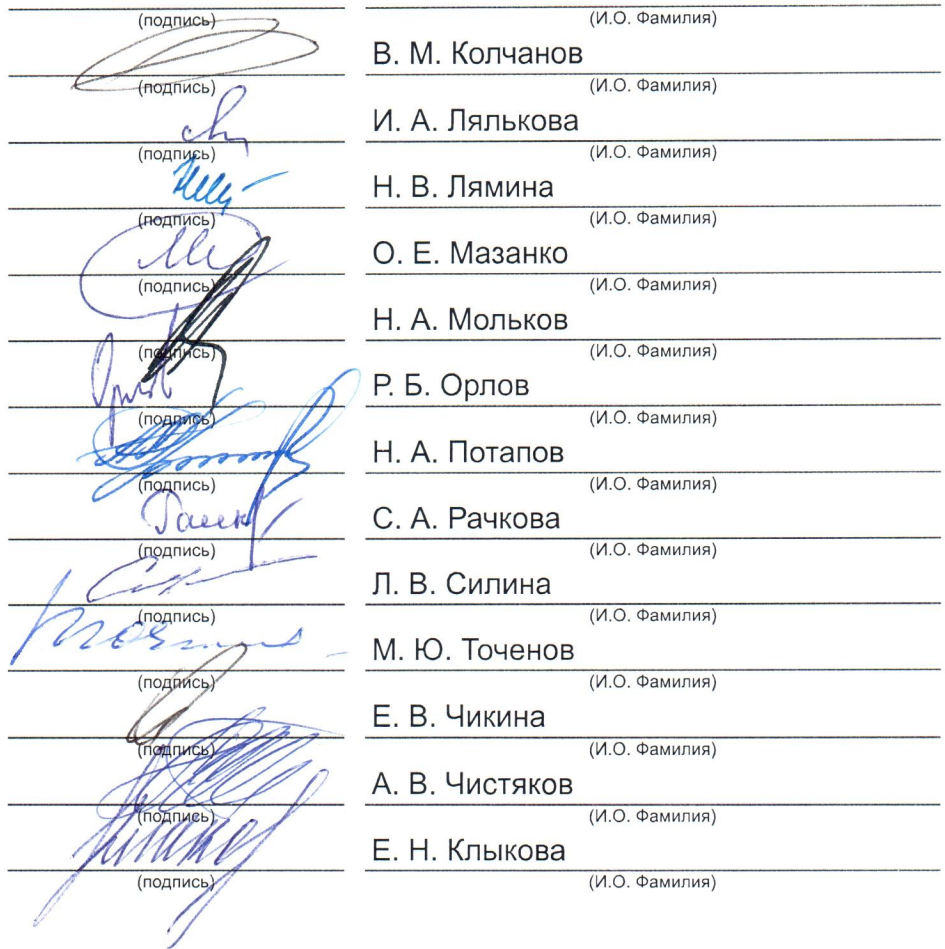 (подпись) (И.О. Фамилия)
В. М. Колчанов
(подпись) (И.О. Фамилия)
И. А. Лялькова
(подпись) (И.О. Фамилия)
Н. В. Лямина
(подпись) (И.О. Фамилия)
О. Е. Мазанко
(подпись) (И.О. Фамилия)
Н. А. Мольков
(подпись) (И.О. Фамилия)
Р. Б. Орлов
(подпись) (И.О. Фамилия)
Н. А. Потапов
(подпись) (И.О. Фамилия)
С. А. Рачкова
(подпись) (И.О. Фамилия)
Л. В. Силина
(подпись) (И.О. Фамилия)
М. Ю. Точенов
(подпись) (И.О. Фамилия)
Е. В. Чикина
(подпись) (И.О. Фамилия)
А. В. Чистяков
(подпись) (И.О. Фамилия)
Е. Н. Клыкова
(подпись) (И.О. Фамилия)